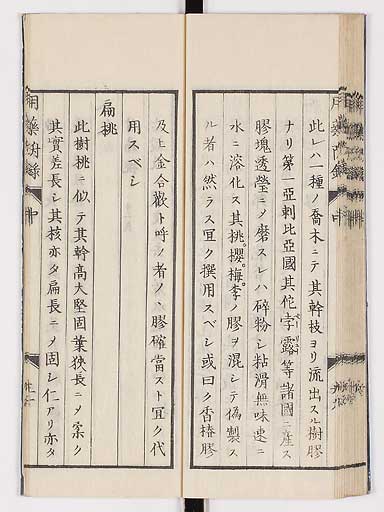 此レハ一種ノ喬木ニテ其幹技ヨリ流出スル樹膠
ナリ第一亞剌比亞國其佗孛露等諸國ニ産ス
膠塊透瑩ニメ磨スレハ碎粉シ粘滑無味速ニ
水ニ溶化ス其桃櫻梅李ノ膠ヲ混シテ偽製ス
ル者ハ然ラス冝ク撰用スベシ或曰ク香椿膠
及ヒ金合歡ト呼ノ者ノ膠確當スト冝ク代
用スベシ
扁桃
此樹桃ニ似テ其幹高大堅固葉狹長ニメ
其實差長シ其核亦タ扁長ニメ固シ仁アリ亦タ